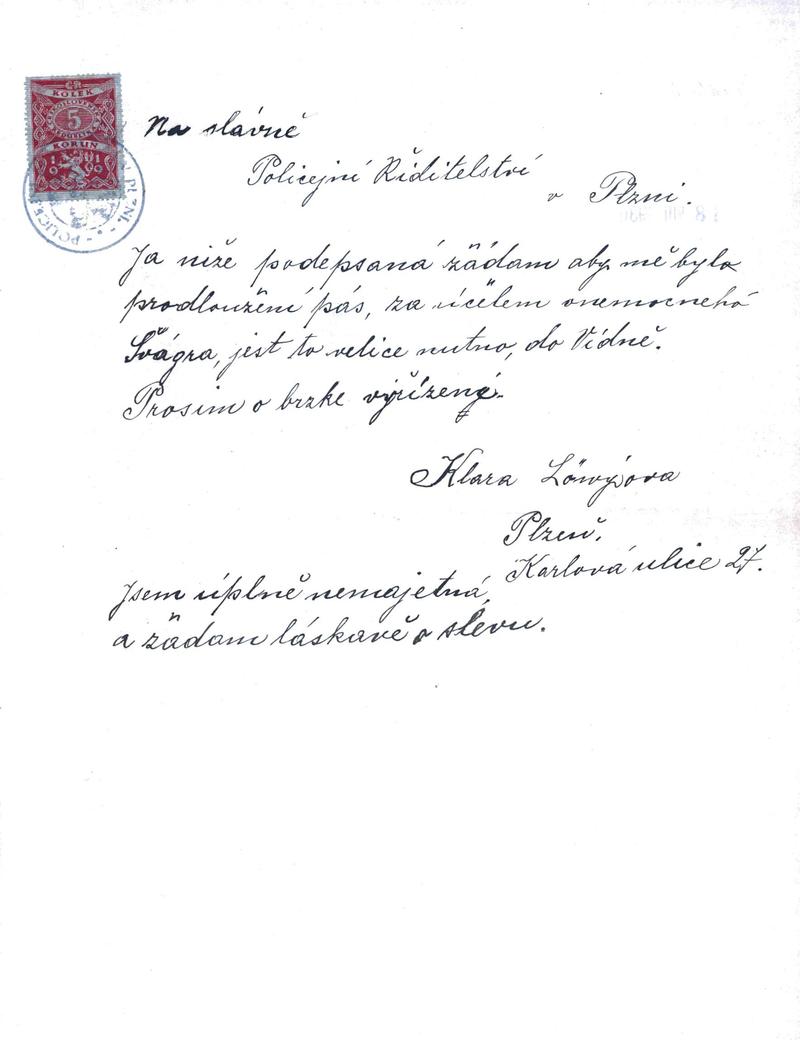 ČR
KOLEK
5
KORUN
Na slávné
Policejní Řiditelství
v Plzni.
Ja niže podepsaná žádam aby mě bylo
prodloužení pás, za účélem onemocného
Švágra, jest to velice nutno, do Vídně.
Prosim o brzke výřízený.
Klara Löwýova
Plzeň.
Karlová ulice 27.
Jsem úplně nemajetná,
a žádam láskavě o slevu.